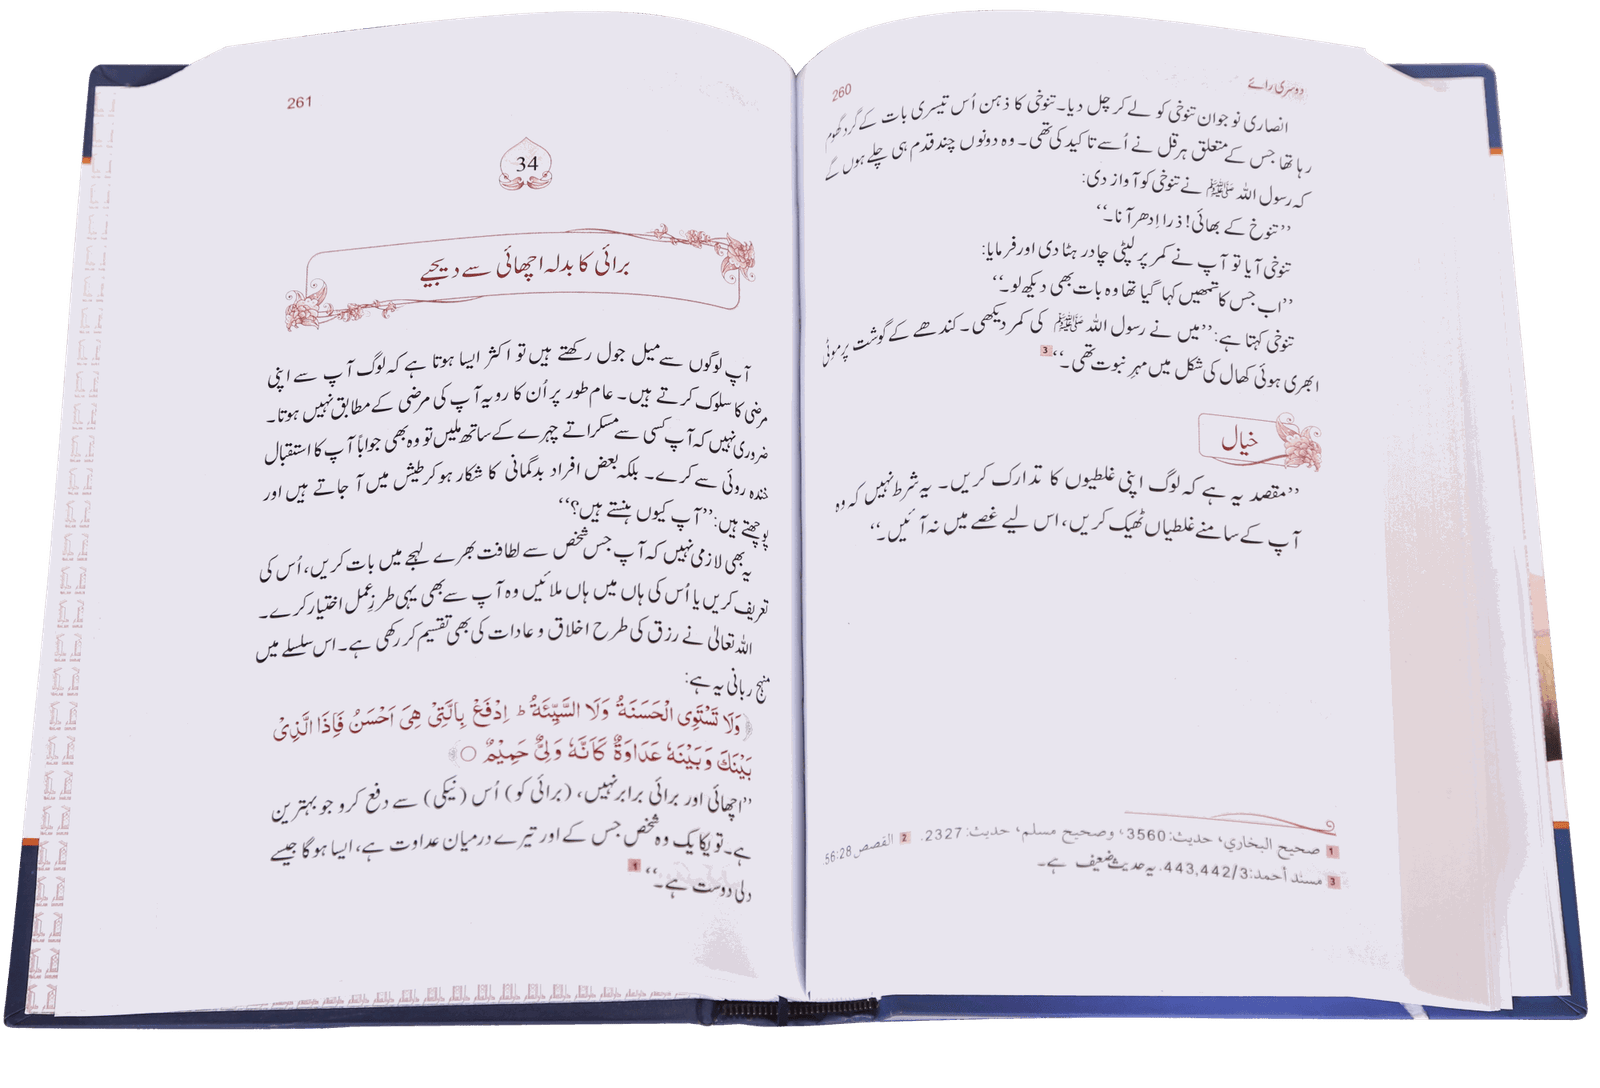 دوسری رائے
260
انصاری نوجوان تنوخی کو لے کر چل دیا۔ تنوخی کا ذہن اُس تیسری بات کے گرد گھوم
رہا تھا جس کے متعلق ہرقل نے اُسے تاکید کی تھی۔ وہ دونوں چند قدم ہی چلے ہوں گے
کہ رسول اللہ ﷺ نے تنوخی کو آواز دی:
’’تنوخ کے بھائی! ذرا اِدھر آنا۔‘‘
تنوخی آیا تو آپ نے کمر پر لپٹی چادر ہٹا دی اور فرمایا:
’’اب جس کا تمھیں کہا گیا تھا وہ بات بھی دیکھ لو۔‘‘
تنوخی کہتا ہے: ’’میں نے رسول اللہ ﷺ کی کمر دیکھی۔ کندھے کے گوشت پر موٹی
ابھری ہوئی کھال کی شکل میں مہرِ نبوت تھی۔‘‘ 3
خیال
’’مقصد یہ ہے کہ لوگ اپنی غلطیوں کا تدارک کریں۔ یہ شرط نہیں کہ وہ
آپ کے سامنے غلطیاں ٹھیک کریں، اس لیے غصے میں نہ آئیں۔‘‘
1 صحيح البخاري، حديث: 3560، وصحيح مسلم، حديث: 2327. 2 القصص 56:28.
3 مسند أحمد: 443,442/3. یہ حدیث ضعیف ہے۔
261
34
برائی کا بدلہ اچھائی سے دیجیے
آپ لوگوں سے میل جول رکھتے ہیں تو اکثر ایسا ہوتا ہے کہ لوگ آپ سے اپنی
مرضی کا سلوک کرتے ہیں۔ عام طور پر اُن کا رویہ آپ کی مرضی کے مطابق نہیں ہوتا۔
ضروری نہیں کہ آپ کسی سے مسکراتے چہرے کے ساتھ ملیں تو وہ بھی جواباً آپ کا استقبال
خندہ روئی سے کرے۔ بلکہ بعض افراد بدگمانی کا شکار ہو کر طیش میں آ جاتے ہیں اور
پوچھتے ہیں: ’’آپ کیوں ہنستے ہیں؟‘‘
یہ بھی لازمی نہیں کہ آپ جس شخص سے لطافت بھرے لہجے میں بات کریں، اُس کی
تعریف کریں یا اُس کی ہاں میں ہاں ملائیں وہ آپ سے بھی یہی طرزِ عمل اختیار کرے۔
اللہ تعالیٰ نے رزق کی طرح اخلاق و عادات کی بھی تقسیم کر رکھی ہے۔ اس سلسلے میں
منہجِ ربانی یہ ہے:
﴿وَلَا تَسْتَوِی الْحَسَنَةُ وَلَا السَّیِّئَةُ ؕ اِدْفَعْ بِالَّتِیْ هِیَ اَحْسَنُ فَاِذَا الَّذِیْ
بَیْنَكَ وَبَیْنَهٗ عَدَاوَةٌ كَاَنَّهٗ وَلِیٌّ حَمِیْمٌ ○﴾
’’اچھائی اور برائی برابر نہیں، (برائی کو) اُس (نیکی) سے دفع کرو جو بہترین
ہے۔ تو یکایک وہ شخص جس کے اور تیرے درمیان عداوت ہے، ایسا ہو گا جیسے
دلی دوست ہے۔‘‘ 1